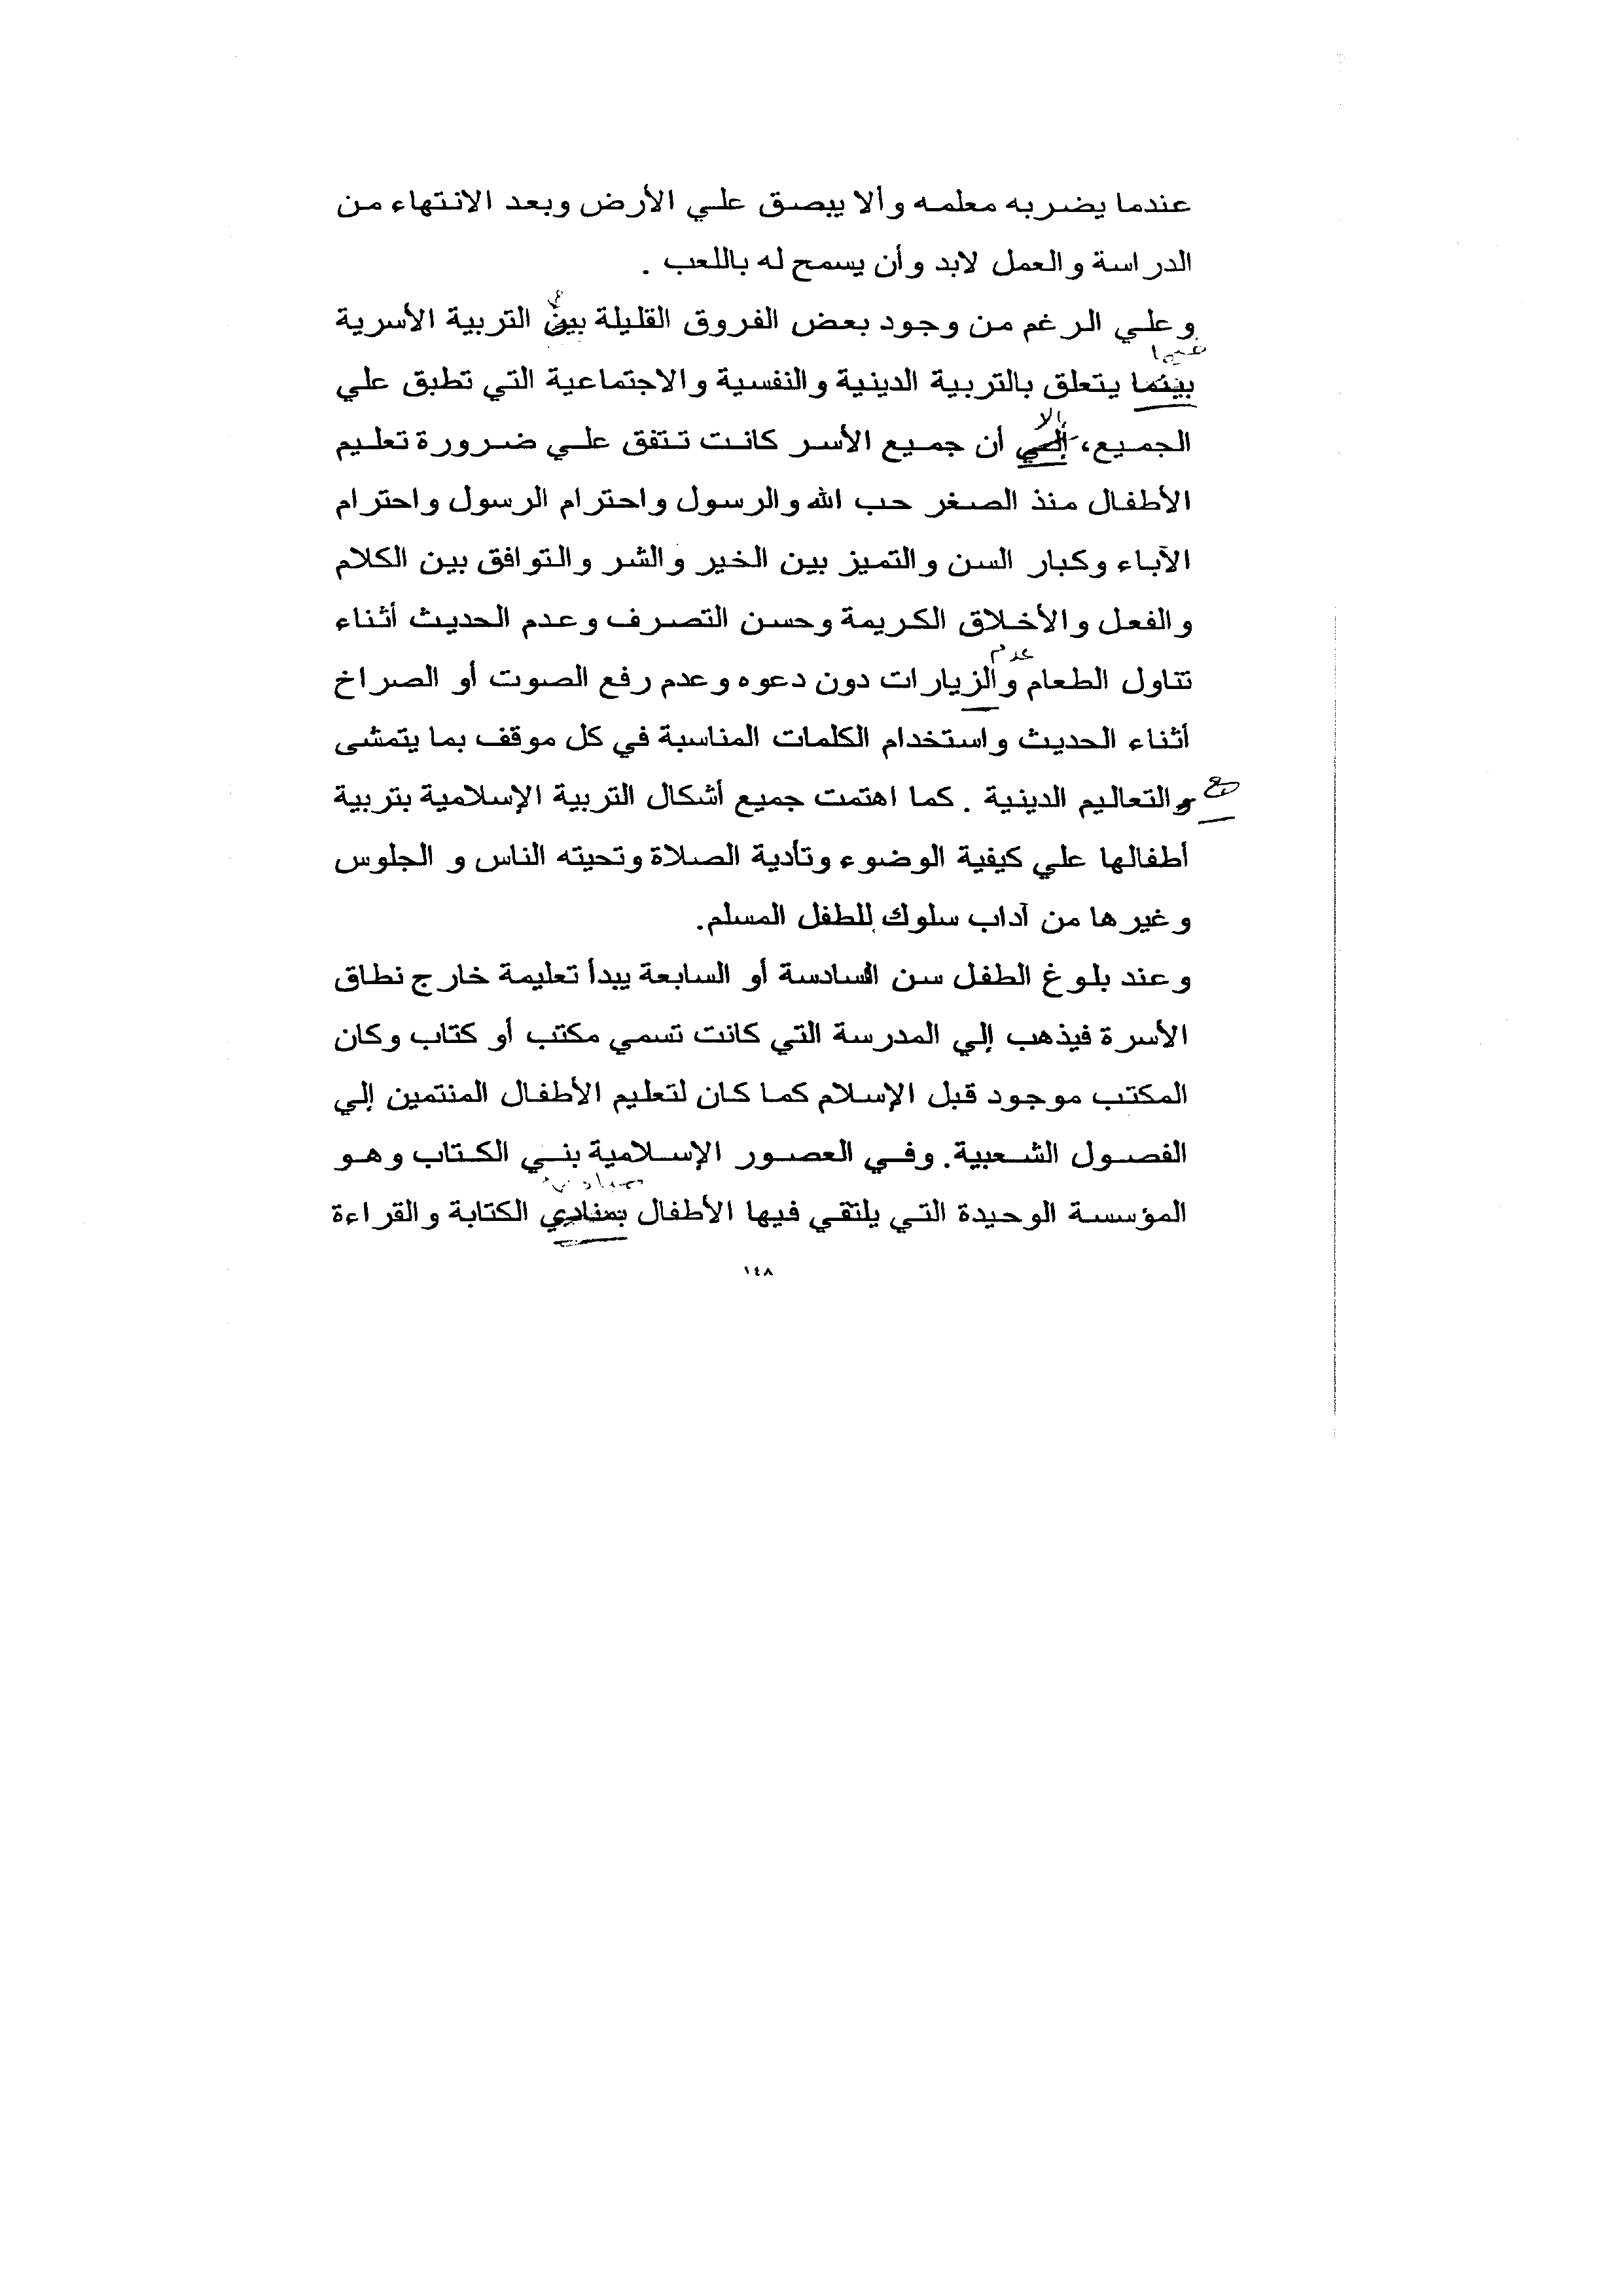 عندما يضربه معلمه وألا يبصق علي الأرض وبعد الانتهاء من
الدراسة والعمل لابد وأن يسمح له باللعب .
وعلي الرغم من وجود بعض الفروق القليلة بين التربية الأسرية
فيما
بينما يتعلق بالتربية الدينية والنفسية والاجتماعية التي تطبق علي
إلا
الجميع، إلي أن جميع الأسر كانت تتفق علي ضرورة تعليم
الأطفال منذ الصغر حب الله والرسول واحترام الرسول واحترام
الآباء وكبار السن والتميز بين الخير والشر والتوافق بين الكلام
والفعل والأخلاق الكريمة وحسن التصرف وعدم الحديث أثناء
عدم
تناول الطعام والزيارات دون دعوه وعدم رفع الصوت أو الصراخ
أثناء الحديث واستخدام الكلمات المناسبة في كل موقف بما يتمشى
مع
والتعاليم الدينية . كما اهتمت جميع أشكال التربية الإسلامية بتربية
أطفالها علي كيفية الوضوء وتأدية الصلاة وتحيته الناس و الجلوس
وغيرها من آداب سلوك للطفل المسلم.
وعند بلوغ الطفل سن السادسة أو السابعة يبدأ تعليمة خارج نطاق
الأسرة فيذهب إلي المدرسة التي كانت تسمي مكتب أو كتاب وكان
المكتب موجود قبل الإسلام كما كان لتعليم الأطفال المنتمين إلي
الفصول الشعبية. وفي العصور الإسلامية بني الكتاب وهو
مبادئ
المؤسسة الوحيدة التي يلتقي فيها الأطفال بمنادي الكتابة والقراءة
١٤٨